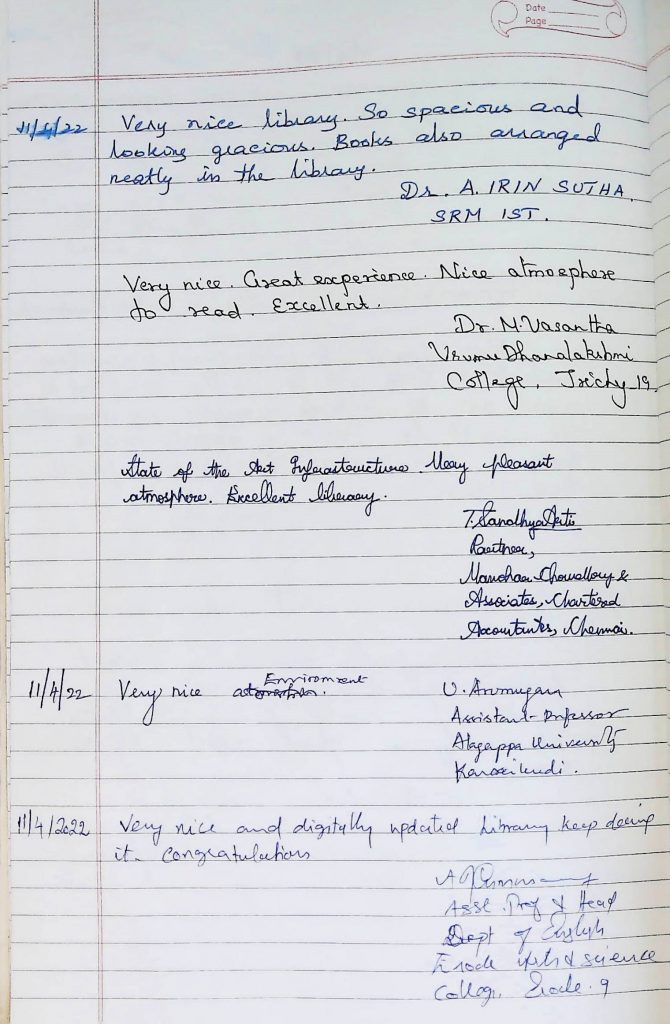 Date
Page
11/4/22
Very nice library. So spacious and
looking gracious. Books also arranged
neatly in the library.
Dr. A. IRIN SUTHA.
SRM IST.
Very nice. Great experience. Nice atmosphere
to read. Excellent.
Dr. M. Vasantha
Dhanalakshmi
College, Trichy 19.
State of the Art Infrastructure. Very pleasant
atmosphere. Excellent library.
T. Sandhya
Partner,
Manohar Chowdhry &
Associates, Chartered
Accountants, Chennai.
11/4/22
Very nice Environment
U. Arumugam
Assistant Professor
Alagappa University
Karaikudi.
11/4/2022
Very nice and digitally updated Library keep doing
it. Congratulations
Asst. Prof & Head
Dept of English
Erode Arts & science
College, Erode. 9